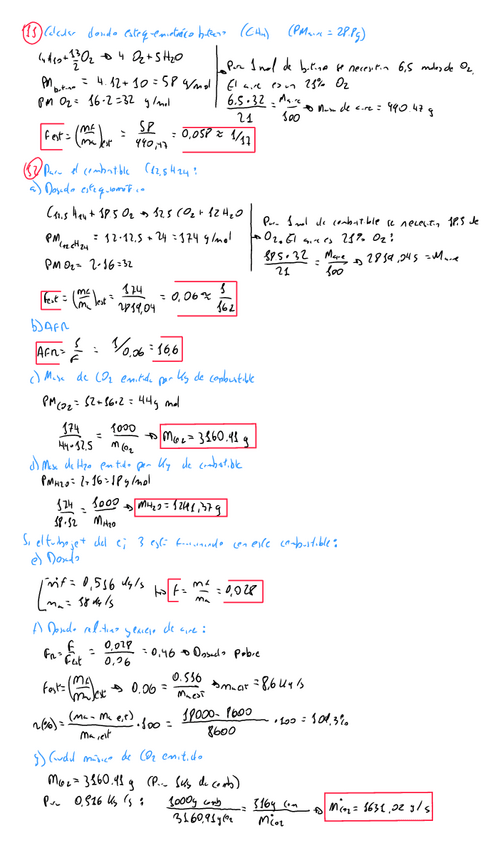 11 Calcular dosado estequiométrico butano (C4H10) (PMaire = 28.8g)
C4H10 + 13/2 O2 → 4 O2 + 5H2O
PM butano = 4·12 + 10 = 58 g/mol
PM O2 = 16·2 = 32 g/mol
Para 1 mol de butano se necesitan 6,5 moles de O2.
El aire es un 21% O2
6.5·32 / 21 = Maire / 100 → Masa de aire = 990.47 g
Fest = (mc/ma)est = 58 / 990,47 = 0,058 ≈ 1/17
12 Para el combustible C12,5H24:
a) Dosado estequiométrico
C12,5 H24 + 18,5 O2 → 12,5 CO2 + 12 H2O
PM C12,5H24 = 12·12,5 + 24 = 174 g/mol
PM O2 = 2·16 = 32
Para 1 mol de combustible se necesitan 18.5 de
O2. El aire es 21% O2:
18.5·32 / 21 = Maire / 100 → 2819,045 = Maire
Fest = (mc/ma)est = 174 / 2819,04 = 0,06 ≈ 1 / 16,2
b) AFR
AFR = 1/F = 1/0,06 = 16,6
c) Masa de CO2 emitida por Kg de combustible
PM CO2 = 12 + 16·2 = 44 g mol
174 / 44·12,5 = 1000 / mCO2 → MCO2 = 3160.91 g
d) Masa de H2O emitido por Kg de combustible
PM H2O = 2+16 = 18 g/mol
174 / 18·12 = 1000 / MH2O → MH2O = 1241,37 g
Si el turbojet del ej 3 está funcionando con este combustible:
e) Dosado
mf = 0,516 Kg/s
ma = 18 Kg/s
→ F = mc / ma = 0,028
f) Dosado relativo y exceso de aire:
FR = F / Fest = 0,028 / 0,06 = 0,46 → Dosado pobre
Fest = (mc/ma)est → 0.06 = 0.516 / ma est → ma est = 8,6 Kg/s
n(%) = (ma - ma est) / ma,est · 100 = 18000 - 8600 / 8600 · 100 = 109,3%
g) Caudal másico de CO2 emitido
MCO2 = 3160.91 g (Para 1Kg de comb)
Para 0,516 Kg/s: 1000g comb / 3160,91g CO2 = 516g com / mCO2 → mCO2 = 1631,02 g/s